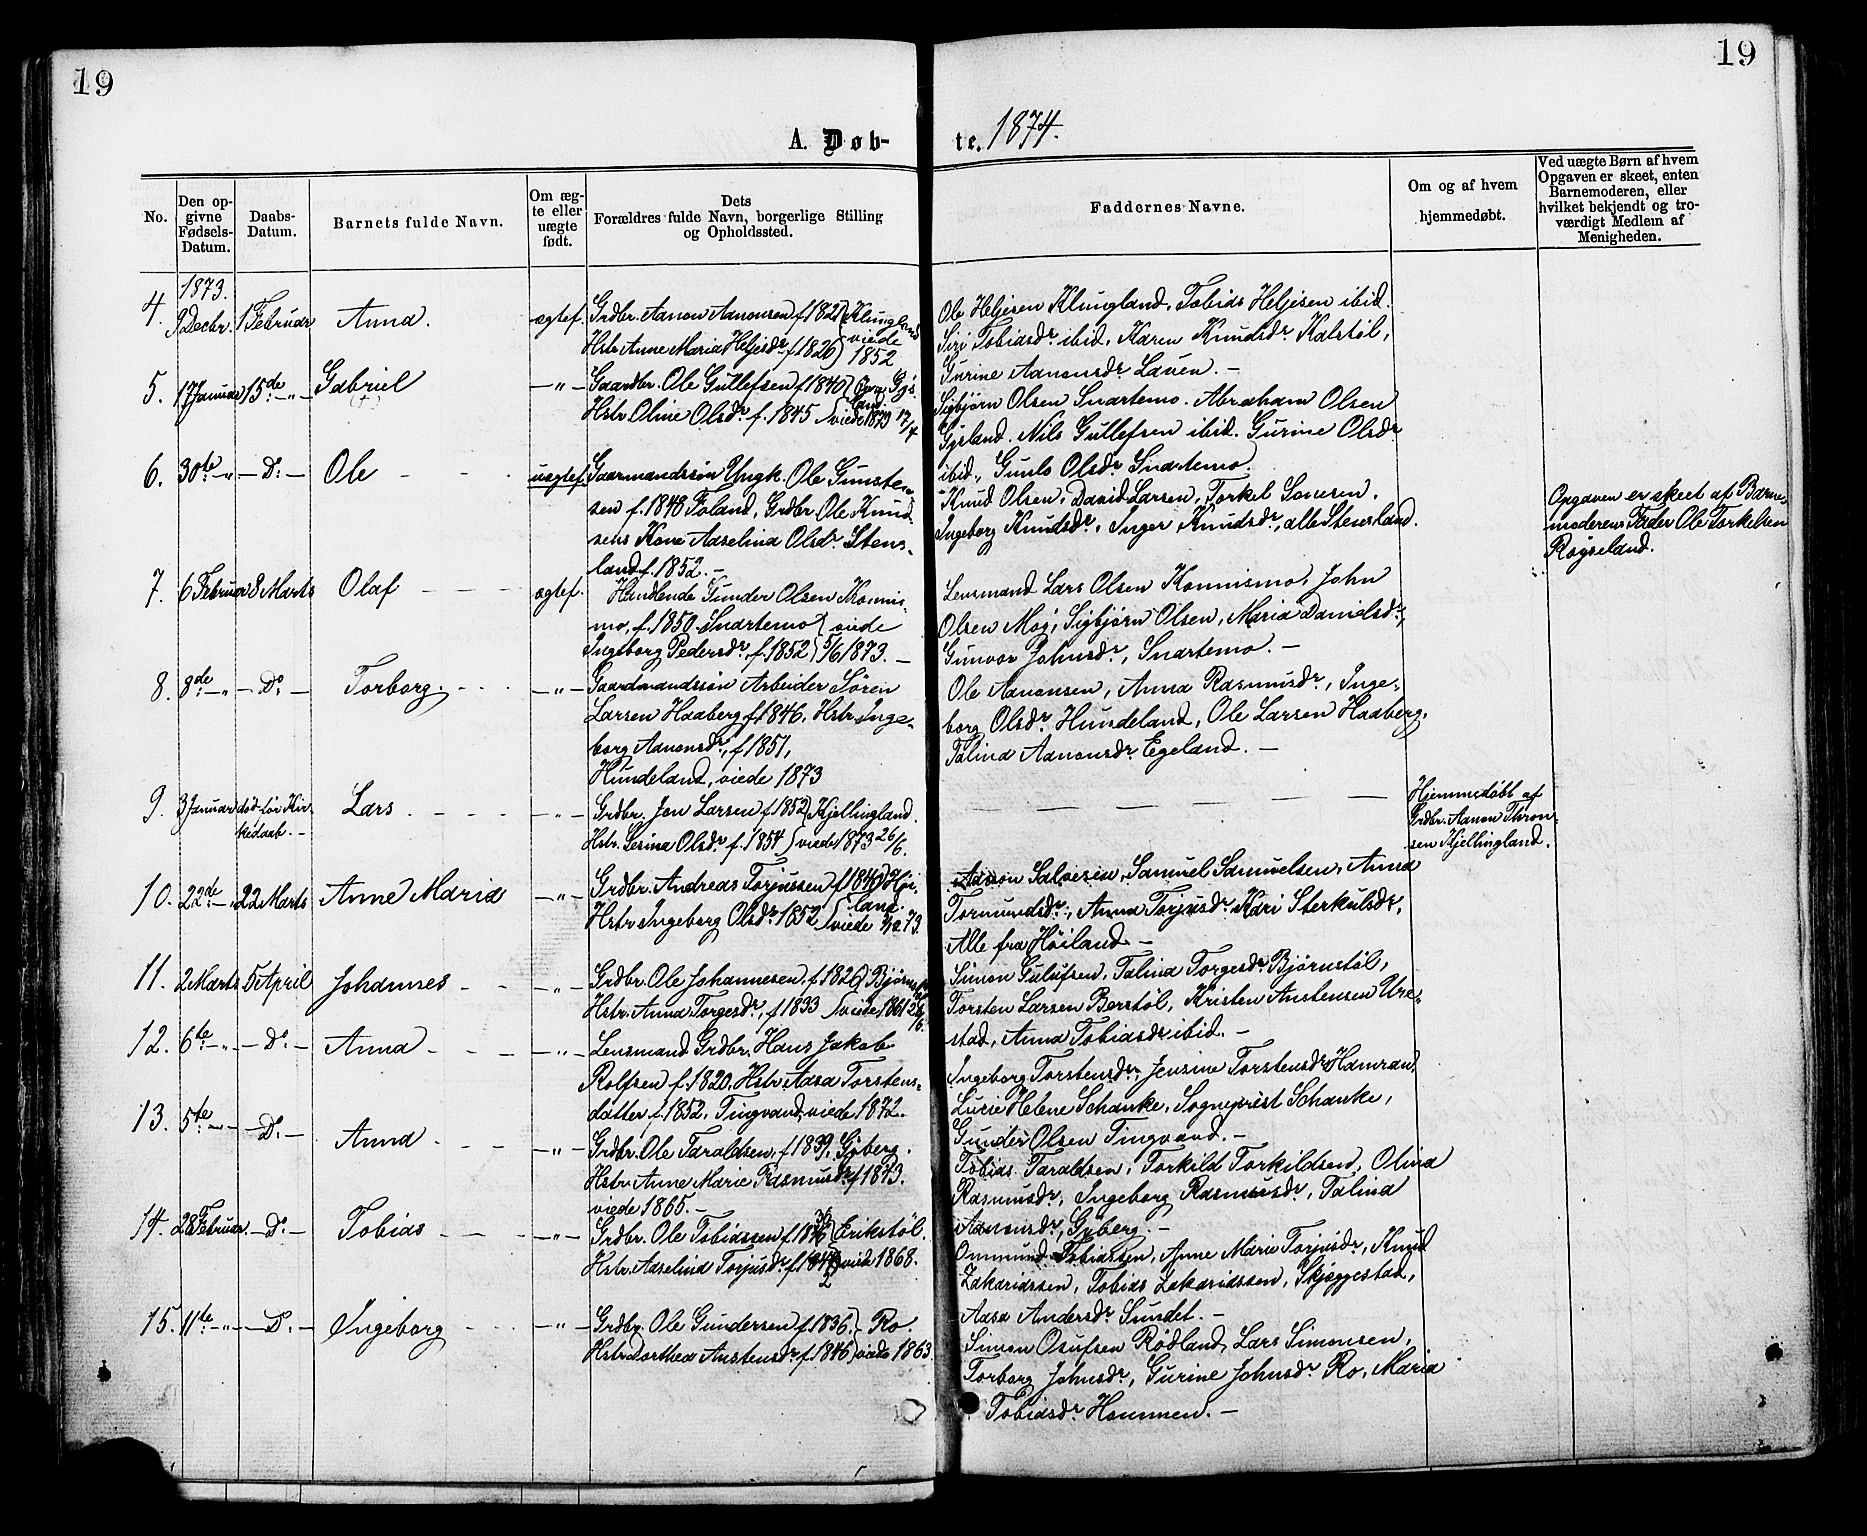 19
19
A. Døb-
te. 1874.
No.
Den op-
givne
Fødsels-
Datum.
Daabs-
Datum.
Barnets fulde Navn.
Om æg-
te eller
uægte
født.
Dets
Forældres fulde Navn, borgerlige Stilling
og Opholdssted.
Faddernes Navne.
Om og af hvem
hjemmedøbt.
Ved uægte Børn af hvem
Opgaven er skeet, enten
Barnemoderen, eller
hvilket bekjendt og tro-
værdigt Medlem af
Menigheden.
4.
1873.
9 Decbr.
1 Februar
Anna.
ægtef.
Grdbr. Aanon Aanonsen f 1821 Klungland
Hstr. Anne Maria Heljesdr. f 1826 viede
1852
Ole Heljesen Klungland, Tobias Heljesen ibid.
Siri Tobiasdr. ibid, Karen Knudsdr. Kalstøl,
Gurine Aanonsdr. Lauen. –
5.
17 Januar
15de – „ –
Gabriel
(+)
– „ –
Gaardbr. Ole Gullefsen f 1840 Gys-
land.
Hstr. Oline Olsdr. f. 1845 viede 1873 17/4
Sigbjørn Olsen Snartemo. Abraham Olsen
Gysland. Nils Gullefsen ibid. Gurine Olsdr
ibid., Gunlo Olsdr. Snartemo.
6.
30te – „ –
– Do. –
Ole
uægtef.
Gaarmandssøn Ungk. Ole Gunste-
sen f. 1848 Foland, Grdbr. Ole Knud-
sens Kone Aaselina Olsdr. Stens-
land f. 1852. –
Knud Olsen, David Larsen, Torkel Lonesen,
Ingeborg Knudsdr., Inger Knudsdr., alle Stensland.
Opgaven er skeet af Barne-
moderens Fader Ole Torkelsen
Røyseland.
7.
6 Februar
8 Marts
Olaf
ægtef.
Handlende Gunder Olsen Konnis-
mo, f. 1850. Snartemo viede
Ingeborg Pedersdr., f. 1852 5/6 1873. –
Lensmand Lars Olsen Konnismo, John
Olsen Moy, Sigbjørn Olsen, Maria Danielsdr.,
Gunvor Johnsdr., Snartemo. –
8.
8de – „
– Do. –
Torborg
– „ –
Gaardmandssøn Arbeider Søren
Larsen Haaberg f. 1846, Hstr. Inge-
borg Aanonsdr., f 1851,
Hundeland, viede 1873
Ole Aanonsen, Anna Rasmusdr., Inge-
borg Olsdr. Hundeland, Ole Larsen Haaberg,
Talina Aanonsdr. Egeland. –
9.
3 Januar
død før Kir-
kedaab. –
Lars
– „ –
Grdbr. Jon Larsen f 1852 Kjellingland.
Hstr. Serina Olsdr. f. 1854 viede 1873 26/6.
Hjemmedøbt af
Grdbr. Aanon Thron-
sen Kjellingland.
10.
22de – „
22 Marts
Anne Maria
– „ –
Grdbr. Andreas Torjussen f 1840 Høi-
land.
Hstr. Ingeborg Olsdr. 1852 viede 73.
Aanon Salvesen, Samuel Samuelsen, Anna
Tormundsdr., Anna Torjusdr. Kari Sterkulsdr,
Alle fra Høiland –
11.
2 Marts
5 April
Johannes
– „ –
Grdbr. Ole Johannesen f 1826 Bjørnstøl
Hstr. Anna Torgesdr., f 1833 viede, 1861
Simon Gulufsen, Talina Torgesdr. Bjørnstøl,
Torsten Larsen Berstøl, Kristen Anstensen Ure-
stad, Anna Tobiasdr. ibid. –
12.
6te – „ –
– Do. –
Anna
– „ –
Lensmand Grdbr. Hans Jakob
Rolfsen f. 1820. Hstr. Aasa Torstens-
datter f. 1852, Tingvand, viede 1872.
Ingeborg Torstensdr., Jensine Torstensdr. Hamran,
Lucie Helene Schanke, Sogneprest Schanke,
Gunder Olsen Tingvand. –
13.
5te – „ –
– Do. –
Anna
– „ –
Grdbr. Ole Taraldsen, f 1839, Gyberg.
Hstr. Anne Marie Rasmusdr. f 1843.
viede 1865. –
Tobias Taraldsen, Torkild Torkildsen, Olina
Rasmusdr., Ingeborg Rasmusdr., Talina
Aanonsdr., Gyberg. –
14.
28 Februar.
– Do. –
Tobias
– „ –
Grdbr. Ole Tobiassen f 1836 Erikstøl.
Hstr. Aaselina Torjusdr. f 1842 viede 1868.
Ommund Tobiassen, Anne Marie Torjusdr., Knud
Zakariassen, Tobias Zakariassen, Skjeggestad,
Aasa Andersdr. Sundet. –
15.
11te – „ –
– Do. –
Ingeborg
– „ –
Grdbr. Ole Gundersen f 1836. Ro.
Hstr. Dorthea Anstensdr. f. 1846 viede 1863.
Simon Osufsen Rødland, Lars Simonsen,
Torborg Johnsdr., Gurine Johnsdr. Ro, Maria
Tobiasdr. Hommen. –